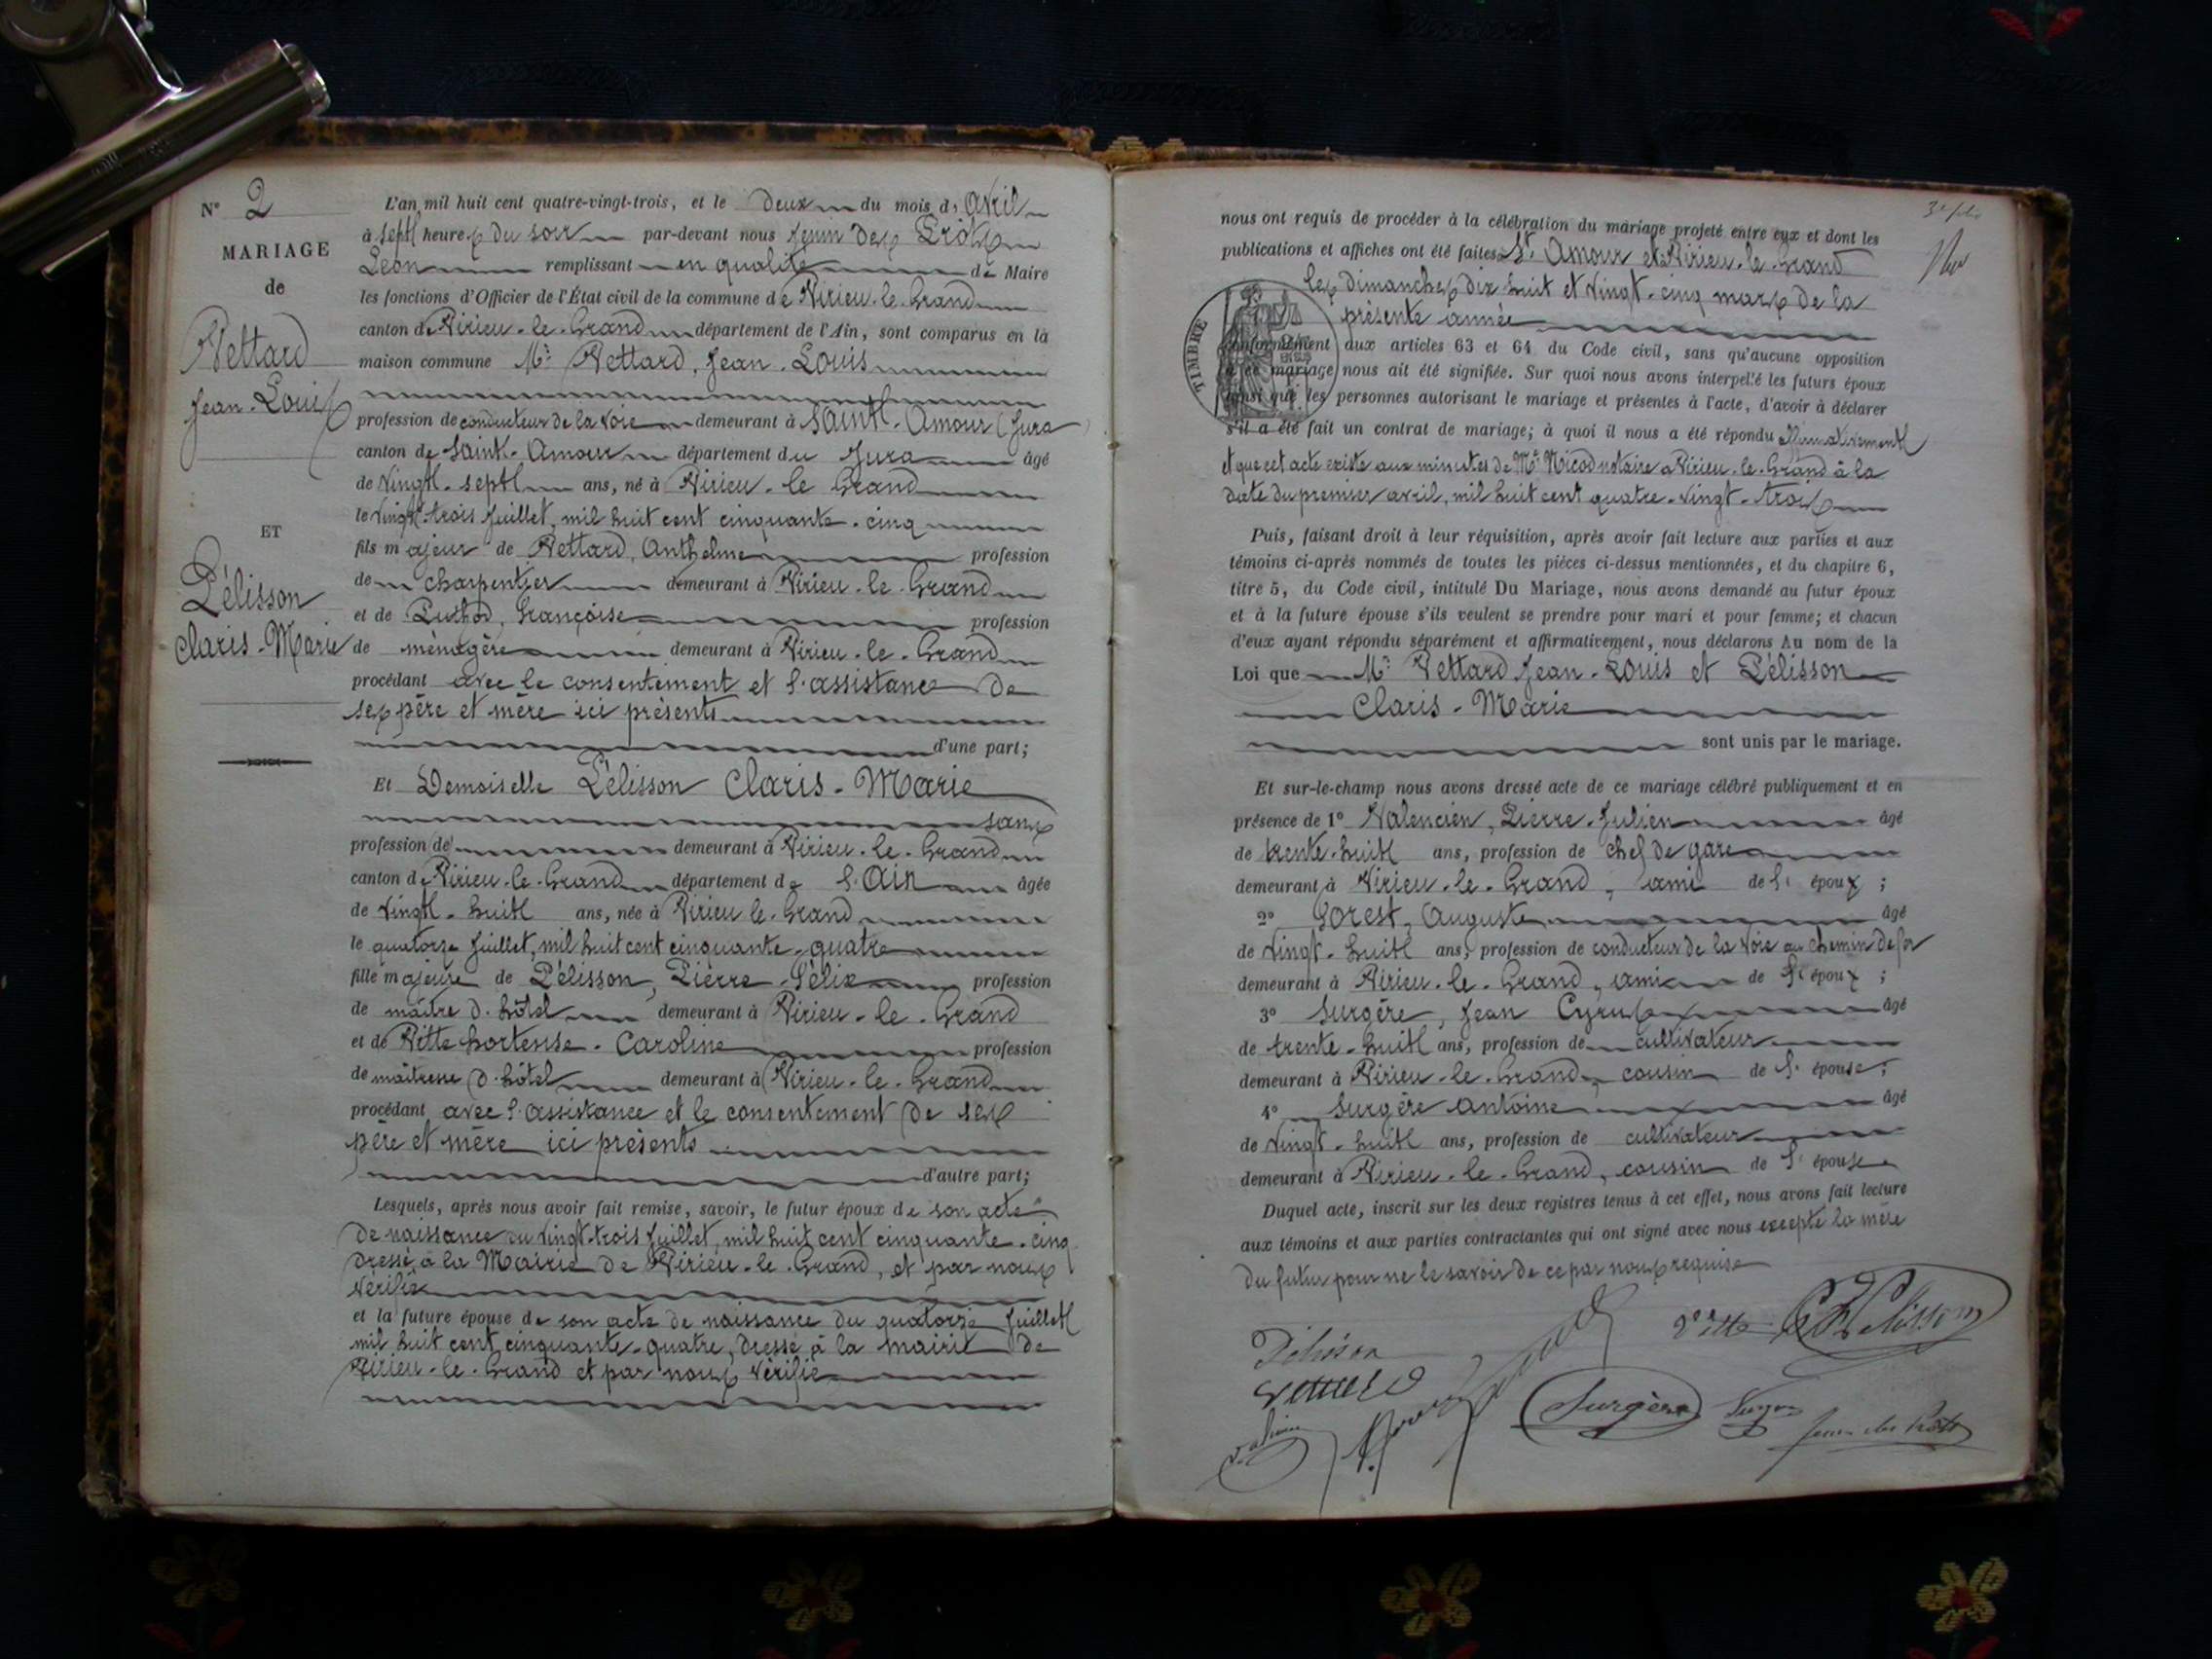 N° 2
MARIAGE
de
Vettard
Jean-Louis
ET
Pélisson
Claris-Marie
L'an mil huit cent quatre-vingt-trois, et le deux du mois d'Avril
à sept heures du soir par-devant nous Jenin des Prôts
Léon remplissant en qualité de Maire
les fonctions d'Officier de l'État civil de la commune de Virieu-le-Grand
canton de Virieu-le-Grand département de l'Ain, sont comparus en la
maison commune Mr Vettard, Jean-Louis
profession de conducteur de la voie demeurant à Saint-Amour (Jura)
canton de Saint-Amour département du Jura âgé
de vingt-sept ans, né à Virieu-le-Grand
le vingt-trois juillet, mil huit cent cinquante-cinq
fils majeur de Vettard, Anthelme profession
de charpentier demeurant à Virieu-le-Grand
et de Puthod, Françoise profession
de ménagère demeurant à Virieu-le-Grand
procédant avec le consentement et l'assistance de
ses père et mère ici présents
d'une part;
Et Demoiselle Pélisson Claris-Marie
sans
profession de demeurant à Virieu-le-Grand
canton de Virieu-le-Grand département de l'Ain âgée
de vingt-huit ans, née à Virieu-le-Grand
le quatorze juillet, mil huit cent cinquante-quatre
fille majeure de Pélisson, Pierre-Félix profession
de maître d'hôtel demeurant à Virieu-le-Grand
et de Vitte hortense-Caroline profession
de maîtresse d'hôtel demeurant à Virieu-le-Grand
procédant avec l'assistance et le consentement de ses
père et mère ici présents
d'autre part;
Lesquels, après nous avoir fait remise, savoir, le futur époux de son acte
de naissance du vingt-trois juillet, mil huit cent cinquante-cinq
dressé à la Mairie de Virieu-le-Grand, et par nous
vérifié
et la future épouse de son acte de naissance du quatorze juillet
mil huit cent cinquante-quatre, dressé à la mairie de
Virieu-le-Grand et par nous vérifié
3e folio
nous ont requis de procéder à la célébration du mariage projeté entre eux et dont les
publications et affiches ont été faites à St Amour et à Virieu-le-Grand
les dimanches dix-huit et vingt-cinq mars de la
présente année
TIMBRE
conformément aux articles 63 et 64 du Code civil, sans qu'aucune opposition
à ce mariage nous ait été signifiée. Sur quoi nous avons interpellé les futurs époux
ainsi que les personnes autorisant le mariage et présentes à l'acte, d'avoir à déclarer
s'il a été fait un contrat de mariage; à quoi il nous a été répondu affirmativement
et que cet acte existe aux minutes de Me Nicod notaire à Virieu-le-Grand à la
date du premier avril, mil huit cent quatre-vingt-trois
Puis, faisant droit à leur réquisition, après avoir fait lecture aux parties et aux
témoins ci-après nommés de toutes les pièces ci-dessus mentionnées, et du chapitre 6,
titre 5, du Code civil, intitulé Du Mariage, nous avons demandé au futur époux
et à la future épouse s'ils veulent se prendre pour mari et pour femme; et chacun
d'eux ayant répondu séparément et affirmativement, nous déclarons Au nom de la
Loi que Mr Vettard Jean-Louis et Pélisson
Claris-Marie
sont unis par le mariage.
Et sur-le-champ nous avons dressé acte de ce mariage célébré publiquement et en
présence de 1° Valencien, Pierre-Julien âgé
de trente-huit ans, profession de chef de gare
demeurant à Virieu-le-Grand, ami de l'époux;
2° Forest, Auguste âgé
de vingt-huit ans, profession de conducteur de la voie au chemin de fer
demeurant à Virieu-le-Grand, ami de l'époux;
3° Surgère, Jean Cyrus âgé
de trente-huit ans, profession de cultivateur
demeurant à Virieu-le-Grand, cousin de l'épouse;
4° Surgère Antoine âgé
de vingt-huit ans, profession de cultivateur
demeurant à Virieu-le-Grand, cousin de l'épouse
Duquel acte, inscrit sur les deux registres tenus à cet effet, nous avons fait lecture
aux témoins et aux parties contractantes qui ont signé avec nous excepté la mère
du futur pour ne le savoir de ce par nous requise
Pélisson
Vitte
C. Pélisson
Vettard
Surgère
Jenin des Prôts